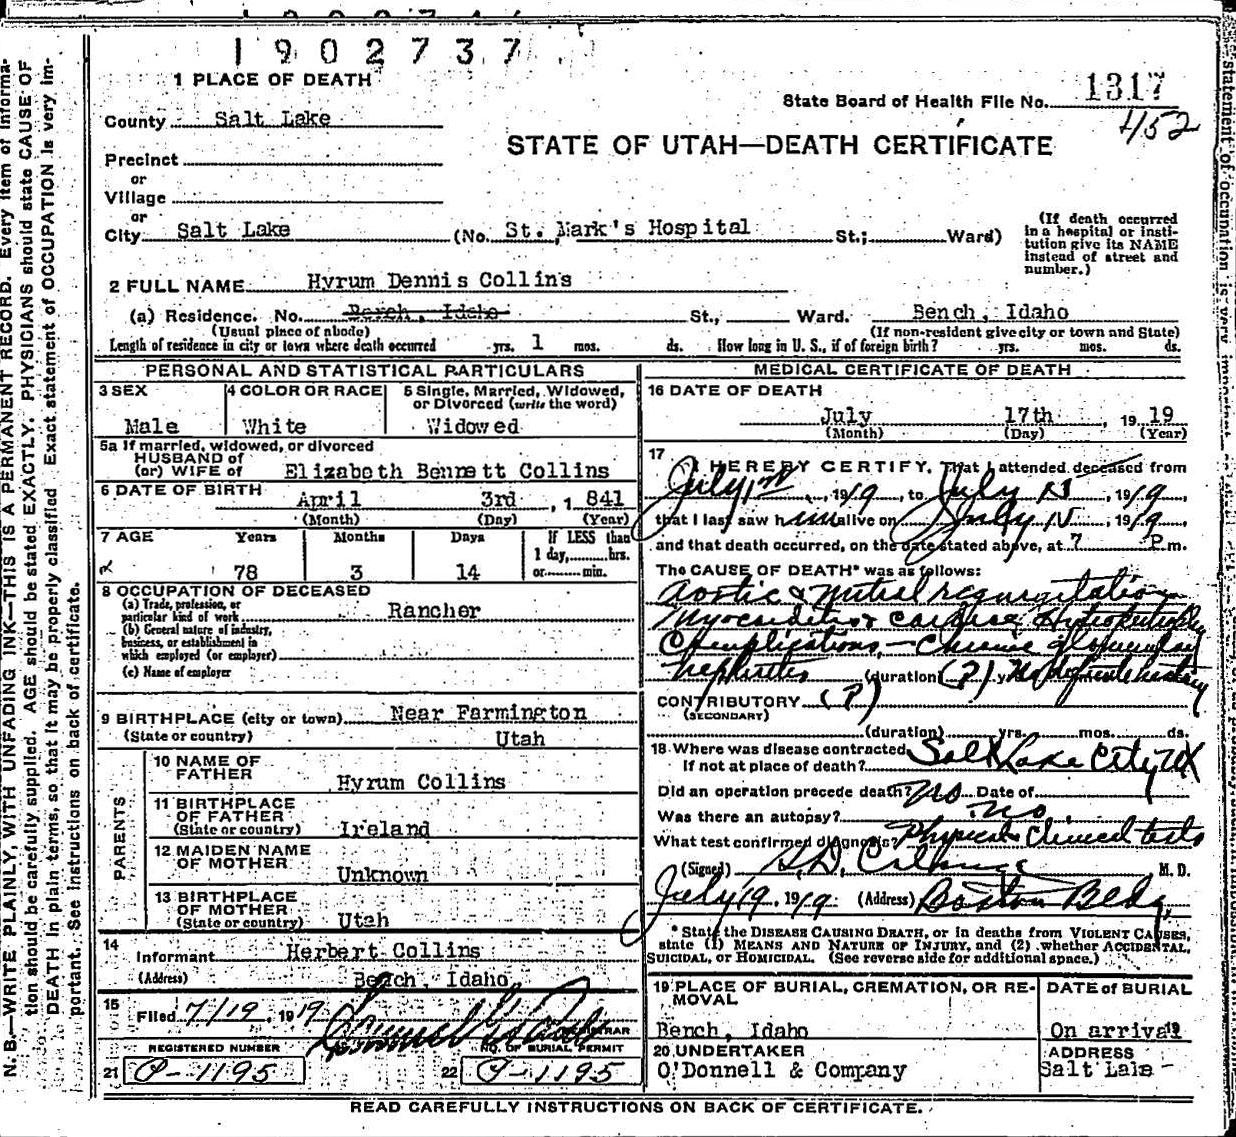 1902737
1 PLACE OF DEATH
State Board of Health File No. 1317
452
County Salt Lake
STATE OF UTAH—DEATH CERTIFICATE
Precinct
or
Village
or
City Salt Lake (No. St. Mark's Hospital St.; Ward)
(If death occurred in a hospital or institution give its NAME instead of street and number.)
2 FULL NAME Hyrum Dennis Collins
(a) Residence. No. Bench, Idaho St., Ward. Bench, Idaho
(Usual place of abode) (If non-resident give city or town and State)
Length of residence in city or town where death occurred yrs. 1 mos. ds. How long in U. S., if of foreign birth? yrs. mos. ds.
PERSONAL AND STATISTICAL PARTICULARS
3 SEX 4 COLOR OR RACE 5 Single, Married, Widowed, or Divorced (write the word)
Male White Widowed
5a If married, widowed, or divorced
HUSBAND of
(or) WIFE of Elizabeth Bennett Collins
6 DATE OF BIRTH April 3rd, 1841
(Month) (Day) (Year)
7 AGE Years Months Days If LESS than
1 day, hrs.
78 3 14 or min.
8 OCCUPATION OF DECEASED
(a) Trade, profession, or
particular kind of work Rancher
(b) General nature of industry,
business, or establishment in
which employed (or employer)
(c) Name of employer
9 BIRTHPLACE (city or town) Near Farmington
(State or country) Utah
PARENTS
10 NAME OF
FATHER Hyrum Collins
11 BIRTHPLACE
OF FATHER
(State or country) Ireland
12 MAIDEN NAME
OF MOTHER Unknown
13 BIRTHPLACE
OF MOTHER
(State or country) Utah
14
Informant Herbert Collins
(Address) Bench, Idaho
15
Filed 7/19, 1919
REGISTRAR
REGISTERED NUMBER NO. OF BURIAL PERMIT
21 O-1195 22 O-1195
MEDICAL CERTIFICATE OF DEATH
16 DATE OF DEATH
July 17th 1919
(Month) (Day) (Year)
17
I HEREBY CERTIFY, That I attended deceased from
July 1st, 1919, to July 15, 1919,
that I last saw him alive on July 15, 1919,
and that death occurred, on the date stated above, at 7 P.m.
The CAUSE OF DEATH* was as follows:
Aortic & Mitral regurgitation
Myocarditis & cardiac Hypertrophy
Complications,- Chronic glomerular
nephritis (duration (?) y No definite history
CONTRIBUTORY (?)
(SECONDARY)
(duration) yrs. mos. ds.
18 Where was disease contracted
If not at place of death? Salt Lake City Ut
Did an operation precede death? No Date of
Was there an autopsy? No
What test confirmed diagnosis? Physical & Clinical tests
(Signed) M. D.
July 19, 1919 (Address) Boston Bldg.
* State the DISEASE CAUSING DEATH, or in deaths from VIOLENT CAUSES,
state (1) MEANS AND NATURE OF INJURY, and (2) whether ACCIDENTAL,
SUICIDAL, or HOMICIDAL. (See reverse side for additional space.)
19 PLACE OF BURIAL, CREMATION, OR REMOVAL DATE of BURIAL
Bench, Idaho On arrival 19
20 UNDERTAKER ADDRESS
O'Donnell & Company Salt Lake
READ CAREFULLY INSTRUCTIONS ON BACK OF CERTIFICATE.
N. B.—WRITE PLAINLY, WITH UNFADING INK—THIS IS A PERMANENT RECORD. Every item of informa-
tion should be carefully supplied. AGE should be stated EXACTLY. PHYSICIANS should state CAUSE OF
DEATH in plain terms, so that it may be properly classified. Exact statement of OCCUPATION is very im-
portant. See instructions on back of certificate.
statement of occupation is very